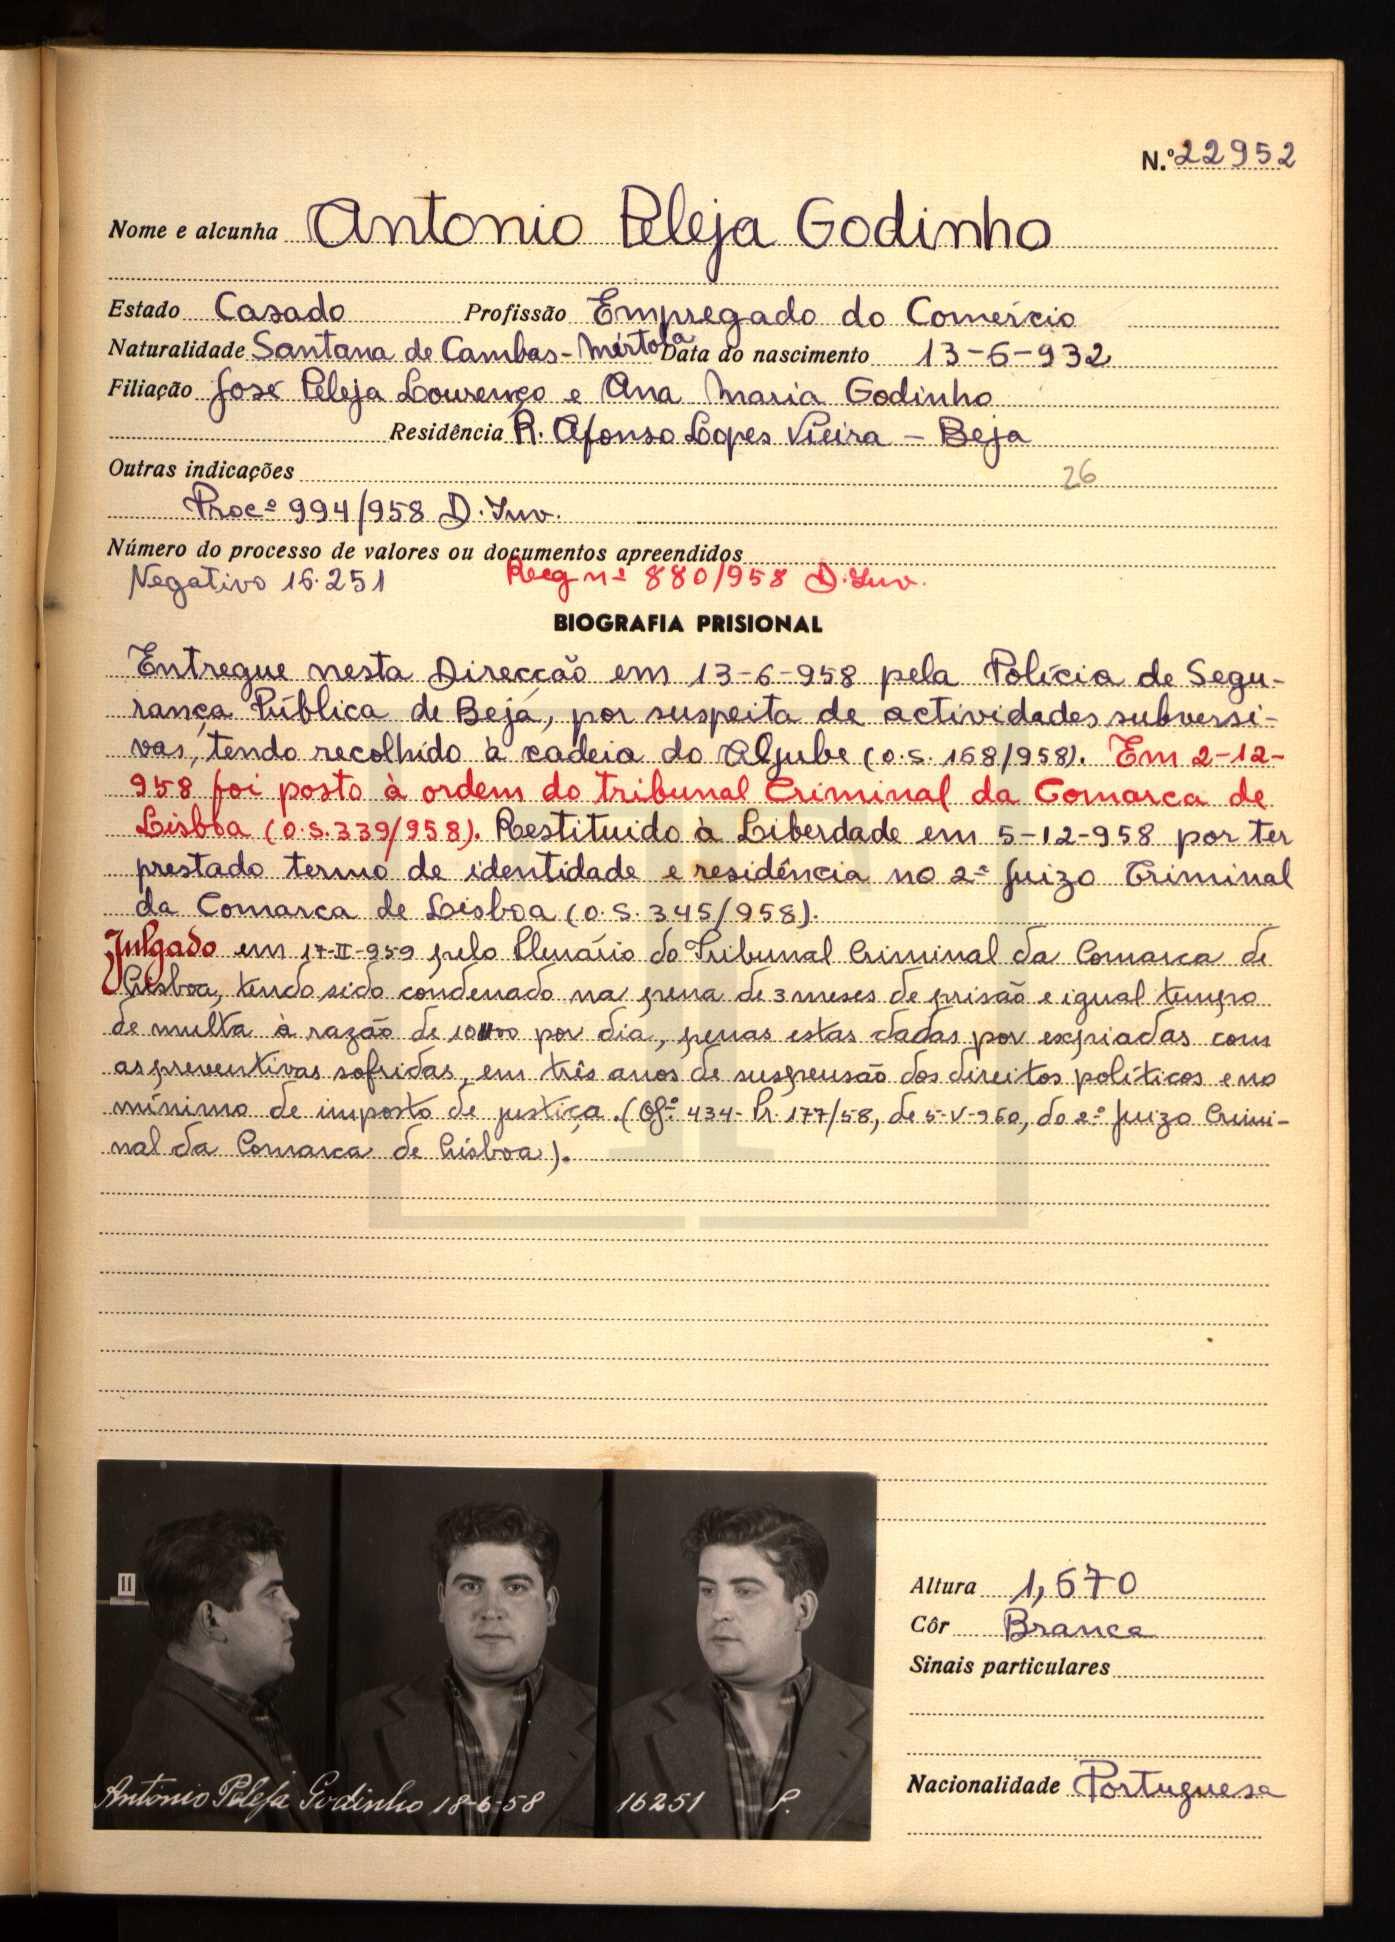 N.º 22952
Nome e alcunha Antonio Peleja Godinho
Estado Casado Profissão Empregado do Comércio
Naturalidade Santana de Cambas - Mértola Data do nascimento 13-6-932
Filiação José Peleja Lourenço e Ana Maria Godinho
Residência R. Afonso Lopes Vieira - Beja
Outras indicações 26
Procº 994/958 D. Inv.
Número do processo de valores ou documentos apreendidos
Negativo 16.251 Reg nº 880/958 D. Inv.
BIOGRAFIA PRISIONAL
Entregue nesta Direcção em 13-6-958 pela Polícia de Segu-
rança Pública de Beja, por suspeita de actividades subversi-
vas, tendo recolhido à cadeia do Aljube (O.S. 168/958). Em 2-12-
958 foi posto à ordem do Tribunal Criminal da Comarca de
Lisboa (O.S. 339/958). Restituido à Liberdade em 5-12-958 por ter
prestado termo de identidade e residência no 2º Juizo Criminal
da Comarca de Lisboa (O.S. 345/958).
Julgado em 17-II-959 pelo Plenário do Tribunal Criminal da Comarca de
Lisboa, tendo sido condenado na pena de 3 meses de prisão e igual tempo
de multa à razão de 10$00 por dia, penas estas dadas por expiadas com
as preventivas sofridas, em três anos de suspensão dos direitos políticos e no
mínimo de imposto de justiça. (Ofº 434 - Pr. 177/58, de 5-V-960, do 2º Juizo Crimi-
nal da Comarca de Lisboa).
11
António Peleja Godinho 18-6-58 16251 P.
Altura 1,670
Côr Branca
Sinais particulares
Nacionalidade Portuguesa